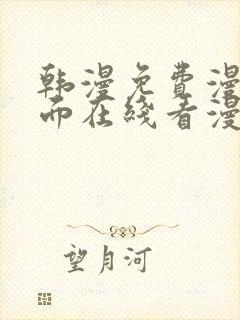 韩漫免费漫
而在线看漫
望月河